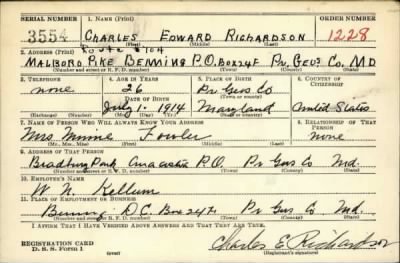 SERIAL NUMBER 1. NAME (Print) ORDER NUMBER
3554 CHARLES EDWARD RICHARDSON 1228
(First) (Middle) (Last)
Route #104
2. ADDRESS (Print)
MALBORO PIKE BENNING P.O. BOX 24F Pr. Geo's Co. MD
(Number and street or R. F. D. number) (Town) (County) (State)
3. TELEPHONE 4. AGE IN YEARS 5. PLACE OF BIRTH 6. COUNTRY OF CITIZENSHIP
none 26 Pr Geo's Co
DATE OF BIRTH (Town or county)
July 1 1914 Maryland United States
(Exchange) (Number) (Mo.) (Day) (Yr.) (State or country)
7. NAME OF PERSON WHO WILL ALWAYS KNOW YOUR ADDRESS 8. RELATIONSHIP OF THAT PERSON
Mrs. Minnie Fowler none
(Mr., Mrs., Miss) (First) (Middle) (Last)
9. ADDRESS OF THAT PERSON
Bradbury Park Anacostia P.O. Pr Geo's Co Md.
(Number and street or R. F. D. number) (Town) (County) (State)
10. EMPLOYER'S NAME
W. N. Kellum
11. PLACE OF EMPLOYMENT OR BUSINESS
Benning D.C. Box 247 Pr Geo's Co Md.
(Number and street or R. F. D. number) (Town) (County) (State)
I AFFIRM THAT I HAVE VERIFIED ABOVE ANSWERS AND THAT THEY ARE TRUE.
REGISTRATION CARD
D. S. S. Form 1 (over) Charles E. Richardson
(Registrant's signature)